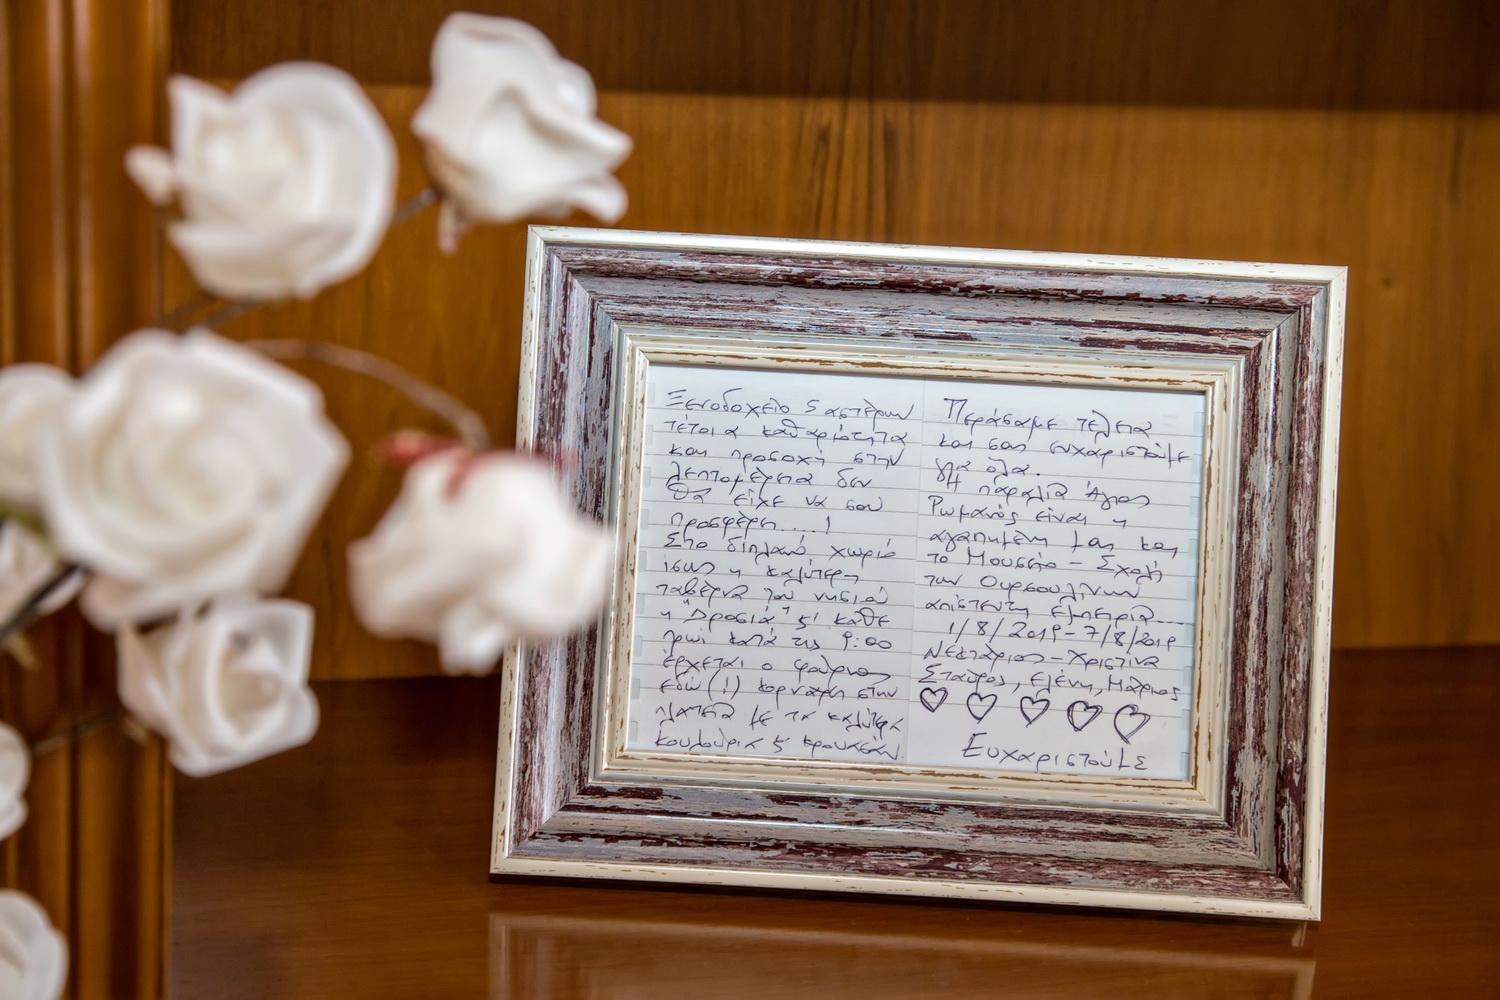 Ξενοδοχείο 5 αστέρων
τέτοια καθαριότητα
και προσοχή στην
λεπτομέρεια δεν
θα είχε να σου
προσφέρει....!
Στο διπλανό χωριό
ίσως η καλύτερη
ταβέρνα του νησιού
η "Δροσιά" κ' κάθε
πρωί κατά τις 9:00
έρχεται ο φούρνος
εδώ (!) κορνάρει στην
πλατεία με τα καλύτερα
κουλούρια κ' κρουασάν.
Περάσαμε τέλεια
και σας ευχαριστούμε
για όλα.
Η παραλία Άγιος
Ρωμανός είναι η
αγαπημένη μας και
το Μουσείο - Σχολή
των Ουρσουλινών
απίστευτη εμπειρία
1/8/2019-7/8/2019
Νεκτάριος-Χριστίνα
Σταύρος, Ελένη, Μάριος
Ευχαριστούμε